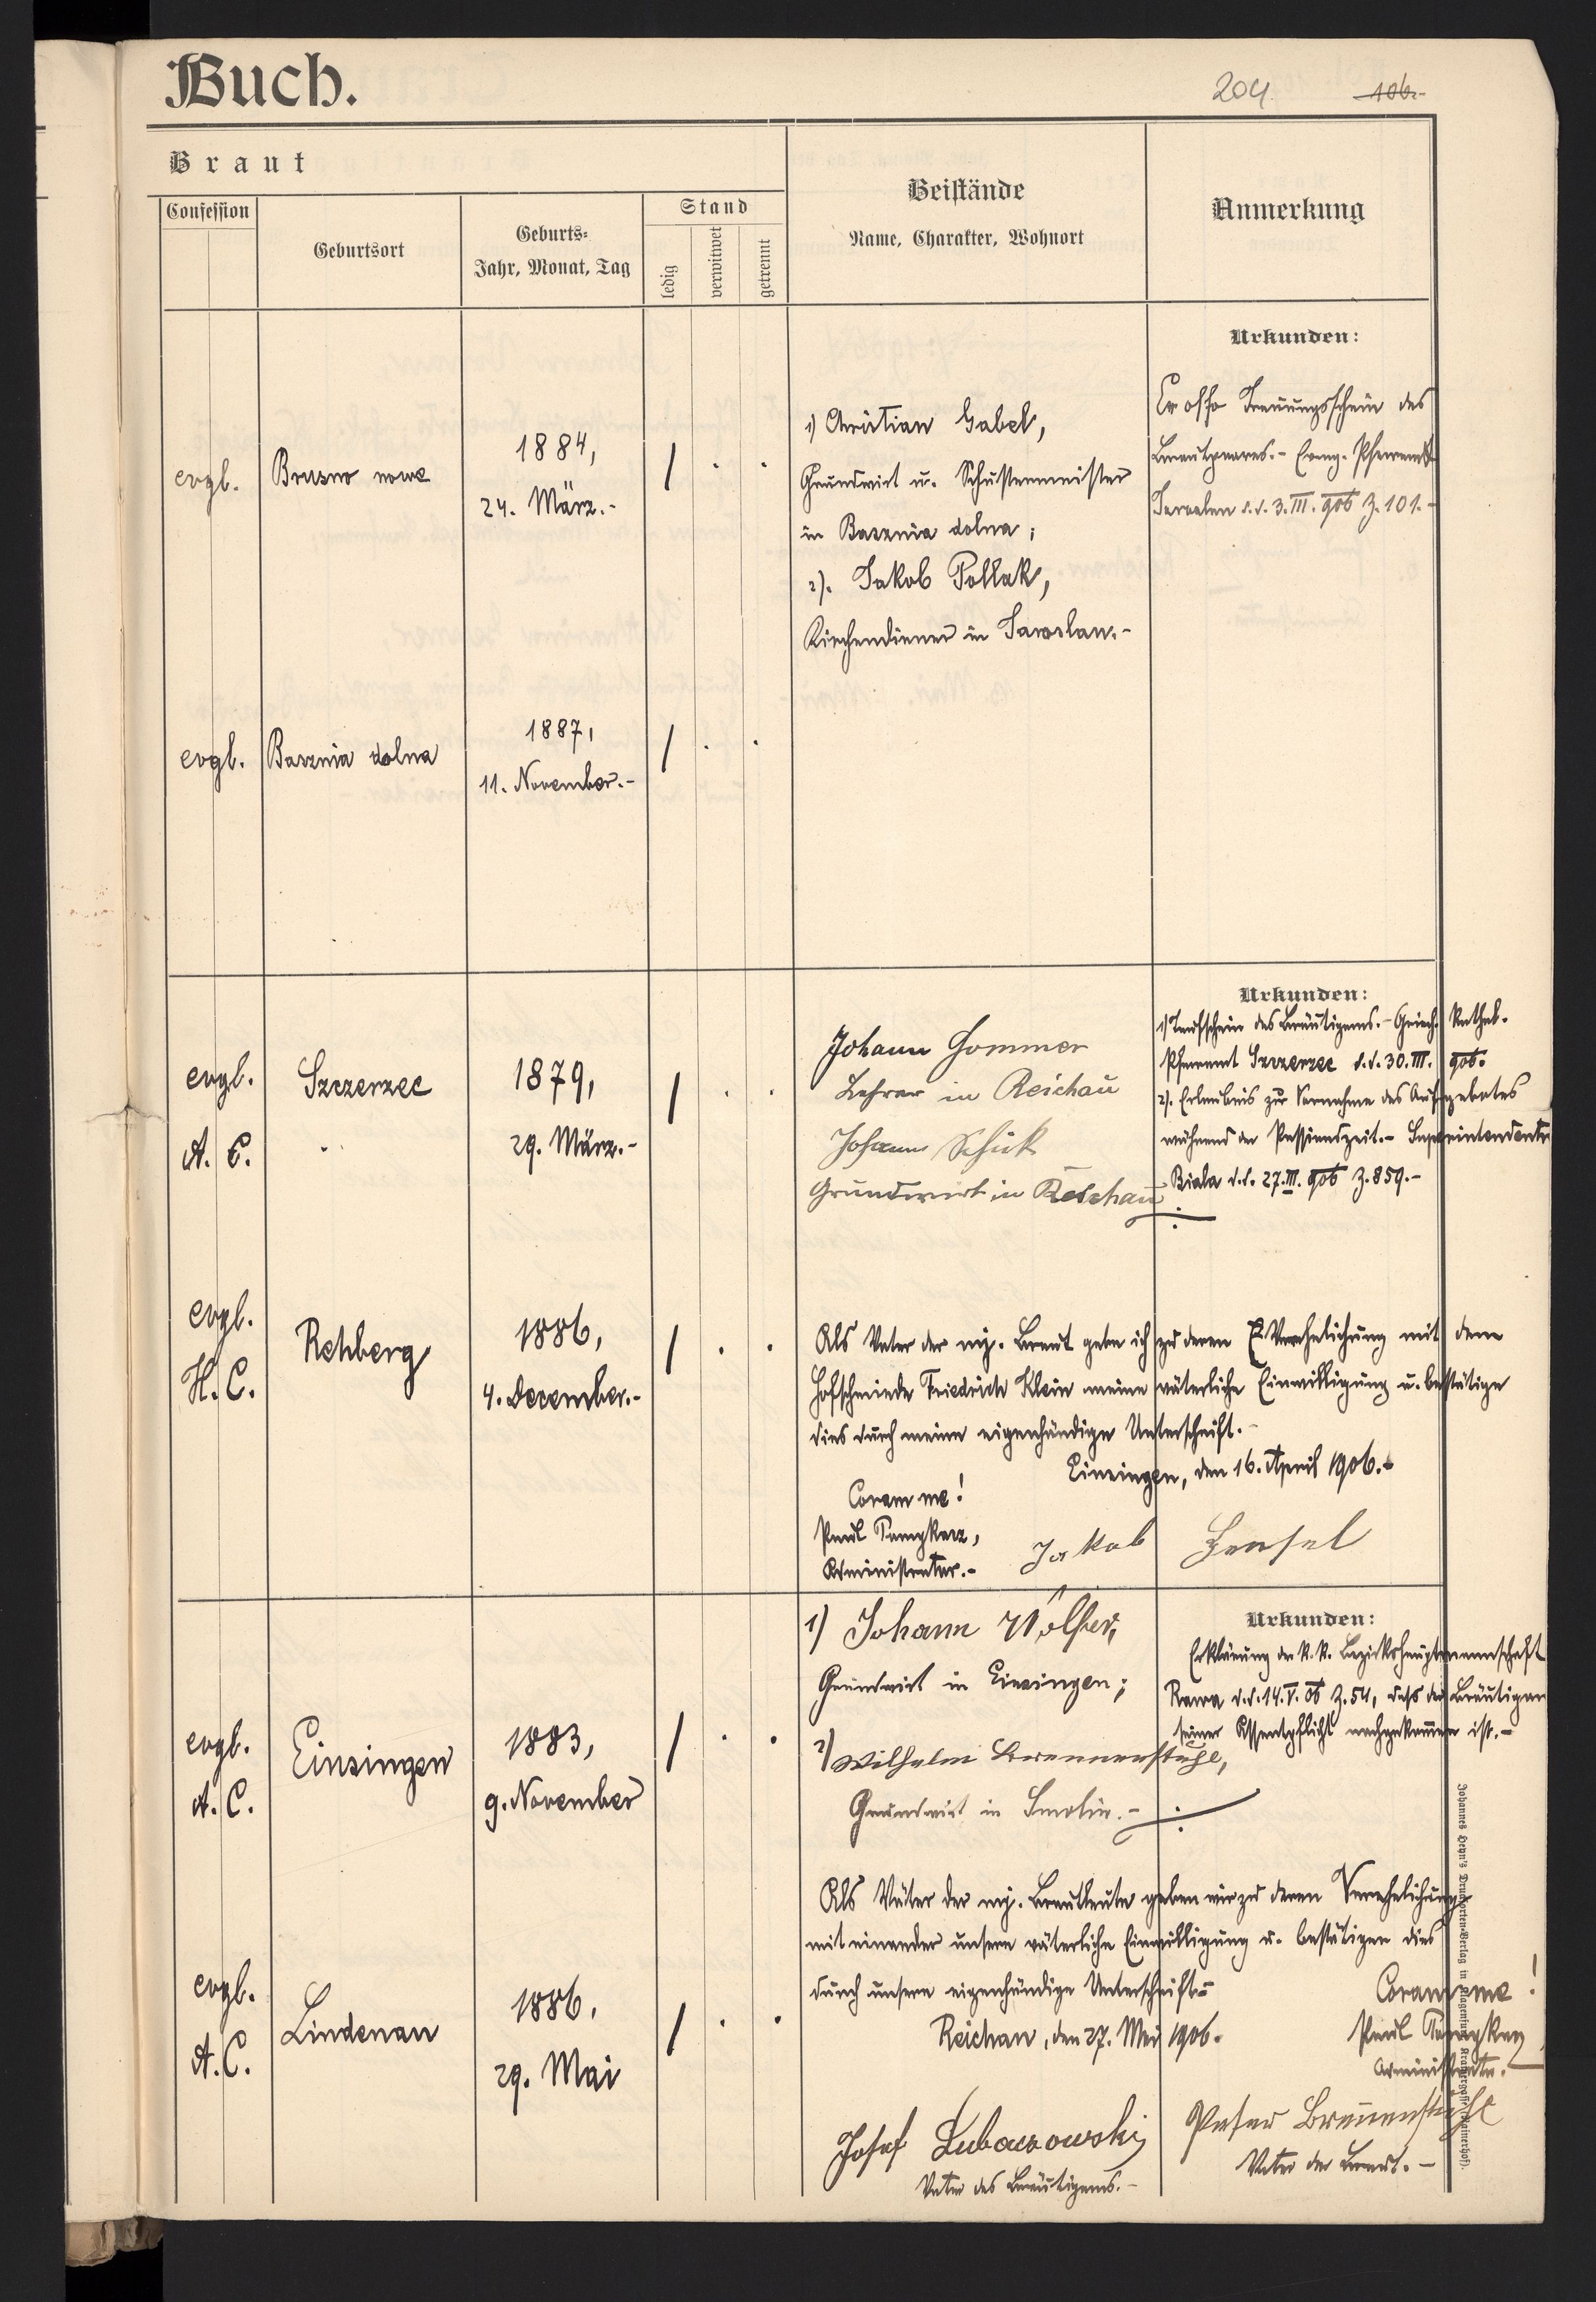 Buch.
204
106.-
Braut
Beistände
Name, Charakter, Wohnort
Anmerkung
Confession
Geburtsort
Geburts-
Jahr, Monat, Tag
Stand
ledig
verwitwet
getrennt
Urkunden:
evgl.
Brusno nowe
1884,
24. März.-
1) Christian Gabel,
Grundwirt u. Schustermeister
in Basznia dolna;
2). Jakob Pollak,
Kirchendiener in Jaroslau.-
Ex offo Trauungsschein des
Brautpaares.- Evang. Pfarramt
Jaroslau d.d. 3. III. 906 Z. 101.-
evgl.
Basznia dolna
1887,
11. November.-
Urkunden:
evgl.
A. C.
Szczerzec
1879,
29. März.-
Johann Sommer
Lehrer in Reichau
Johann Schick
Grundwirt in Reichau
1) Taufschein des Bräutigams.- Griech. Kathol.
Pfarramt Szczerzec d.d. 30. III. 906.
2). Erlaubnis zur Vornahme des Aufgebotes
während der Passionszeit.-
Biala d.d. 27. III. 906 Z. 859.-
evgl.
H. C.
Rehberg
1886,
4. December.-
Als Vater der mj. Braut gebe ich zu deren Verehelichung mit dem
Hofschmiede Friedrich Klein meine väterliche Einwilligung u. bestätige
dies durch meine eigenhändige Unterschrift.-
Einsingen, den 16. April 1906.-
Coram me!
Paul
Administrator.-
Jakob Hensel
1) Johann Wolfer,
Grundwirt in Einsingen;
2) Wilhelm Brennenstuhl,
Grundwirt in Smolin.-
Urkunden:
Erklärung der k.k. Bezirkshauptmannschaft
Rawa d.d. 14. V. 06 Z. 54, daß der Bräutigam
seiner Assentpflicht nachgekommen ist.-
evgl.
A. C.
Einsingen
1883,
9. November
Als Väter der mj. Brautleute geben wir zu deren Verehelichung
mit einander unsere väterliche Einwilligung u. bestätigen dies
durch unsere eigenhändige Unterschrift.-
Reichau, den 27. Mai 1906.
Coram me!
Paul
Administrator.
evgl.
A. C.
Lindenau
1886,
29. Mai
Josef Lubaczowski
Vater des Bräutigams.-
Peter Brennenstuhl
Vater der Braut.-
Johannes Heyn's Drucksorten-Verlag in Klagenfurt